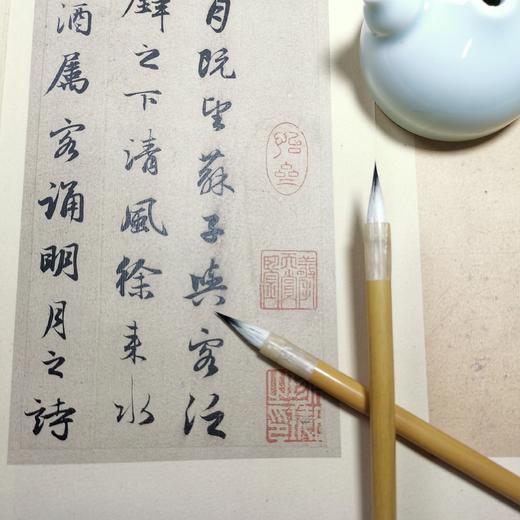 月既望蘇子與客泛
之下清風徐來水
酒属客誦明月之詩